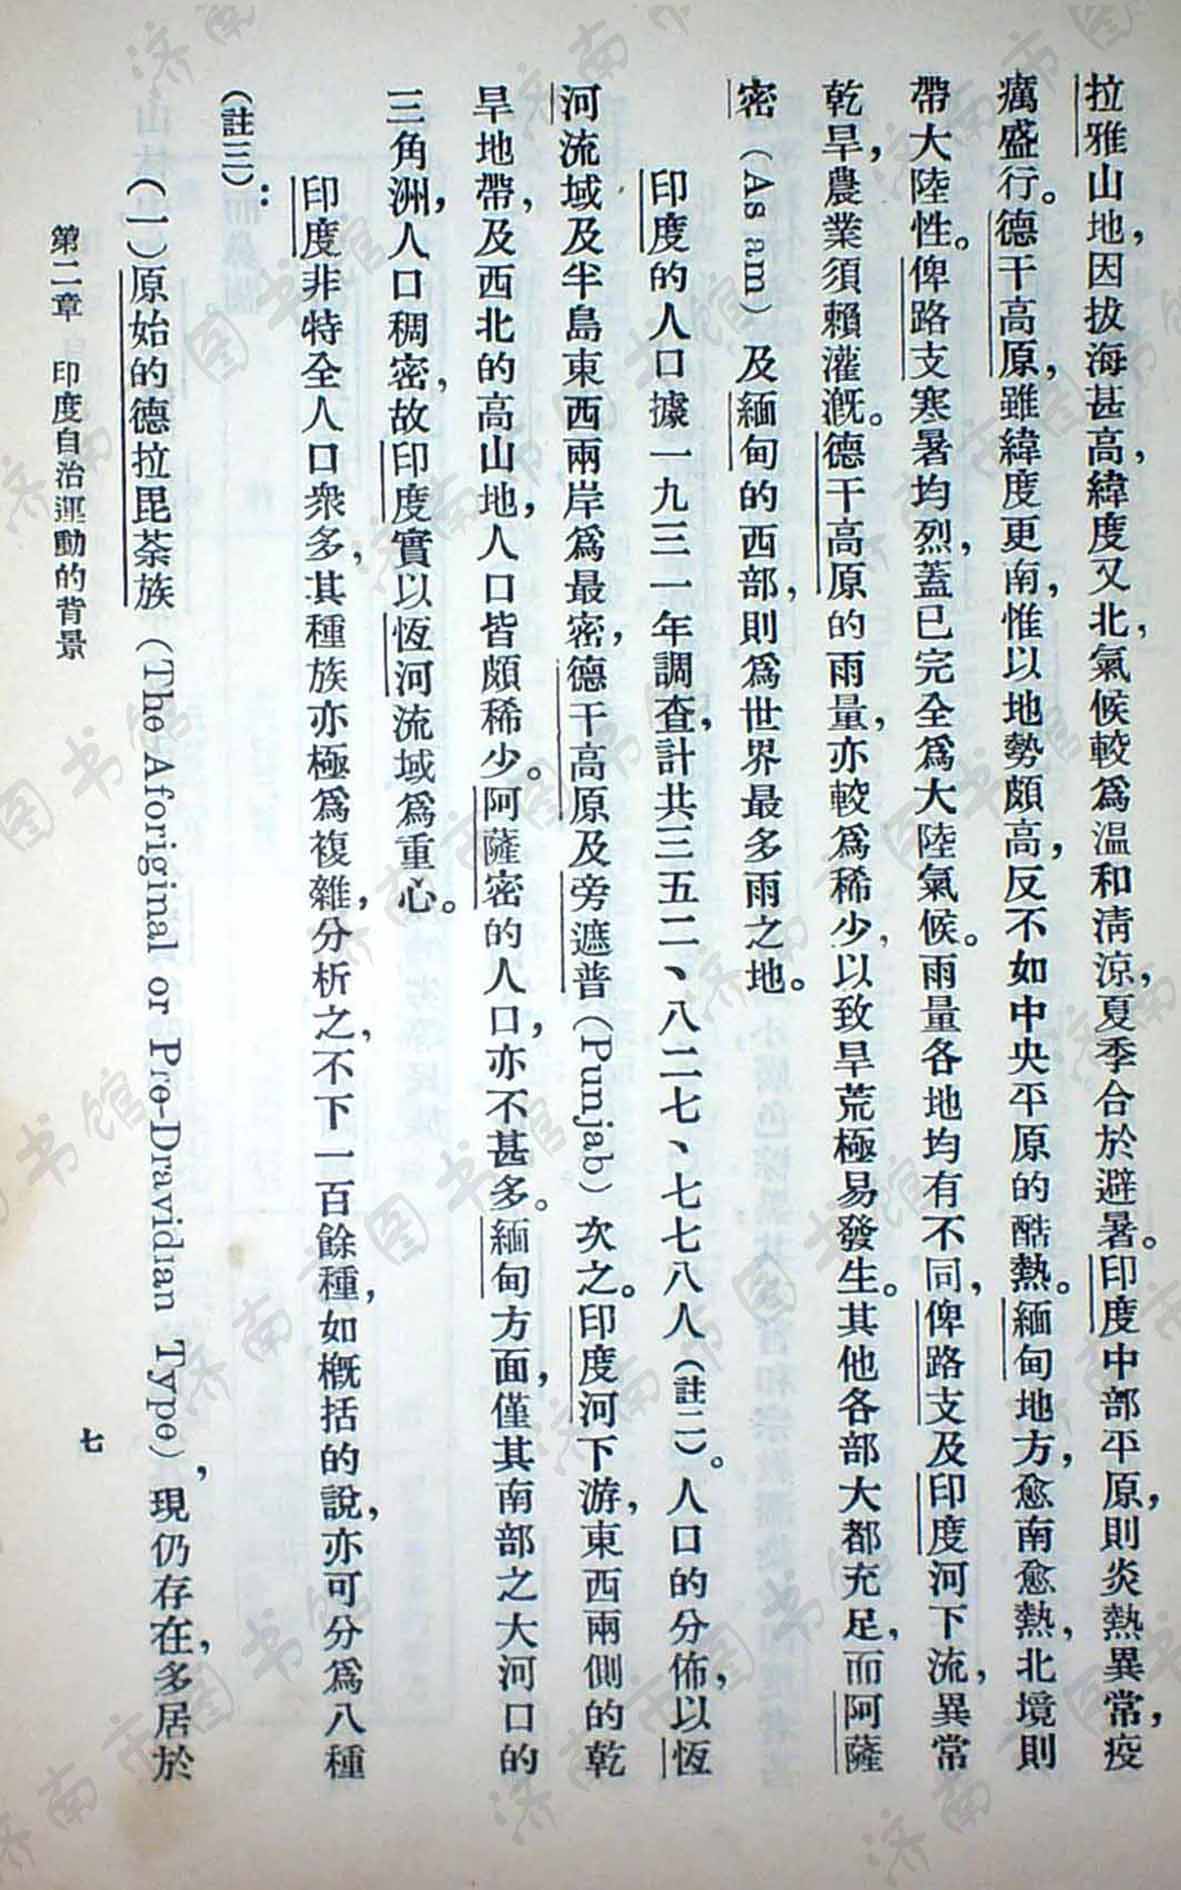 拉雅山地，因拔海甚高，緯度又北，氣候較爲温和淸涼，夏季合於避暑。印度中部平原，則炎熱異常，疫
癘盛行。德干高原，雖緯度更南，惟以地勢頗高，反不如中央平原的酷熱。緬甸地方，愈南愈熱，北境則
帶大陸性。俾路支寒暑均烈，蓋已完全爲大陸氣候。雨量各地均有不同，俾路支及印度河下流，異常
乾旱，農業須賴灌漑。德干高原的雨量，亦較爲稀少，以致旱荒極易發生。其他各部大都充足，而阿薩
密（Asam）及緬甸的西部，則爲世界最多雨之地。
印度的人口據一九三一年調査，計共三五二、八二七、七七八人（註二）。人口的分佈，以恆
河流域及半島東西兩岸爲最密，德干高原及旁遮普（Pumjab）次之。印度河下游，東西兩側的乾
旱地帶，及西北的高山地，人口皆頗稀少。阿薩密的人口，亦不甚多。緬甸方面，僅其南部之大河口的
三角洲，人口稠密，故印度實以恆河流域爲重心。
印度非特全人口衆多，其種族亦極爲複雜，分析之，不下一百餘種，如槪括的說，亦可分爲八種
（註三）：
（一）原始的德拉毘荼族（The Aforiginal or Pre-Dravidian Type），現仍存在，多居於
第二章 印度自治運動的背景
七
濟南市图书馆